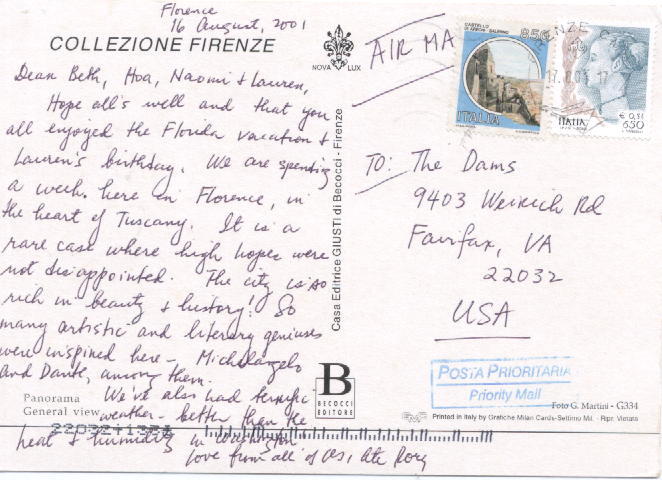 Florence
16 August, 2001
COLLEZIONE FIRENZE
NOVA LUX
Dear Beth, Hoa, Naomi & Lauren,
Hope all's well and that you
all enjoyed the Florida vacation &
Lauren's birthday. We are spending
a week here in Florence, in
the heart of Tuscany. It is a
rare case where high hopes were
not disappointed. The city is so
rich in beauty & history! So
many artistic and literary geniuses
were inspired here – Michelangelo
and Dante, among them.
We've also had terrific
weather – better than the
heat & humidity in Washington
love from all of us,
Rory
Panorama
General view
22032+1351
Casa Editrice GIUSTI di Becocci - Firenze
B
BECOCCI
EDITORE
AIR MA
CASTELLO
DI ARECHI - SALERNO
850
ITALIA
RENZE C
17.8.01 17
€ 0,34
ITALIA 650
TO: The Dams
9403 Weirich Rd
Fairfax, VA
22032
USA
POSTA PRIORITARIA
Priority Mail
Foto G. Martini - G334
Printed in Italy by Grafiche Milan Cards-Settimo Mil. - Ripr. Vietata